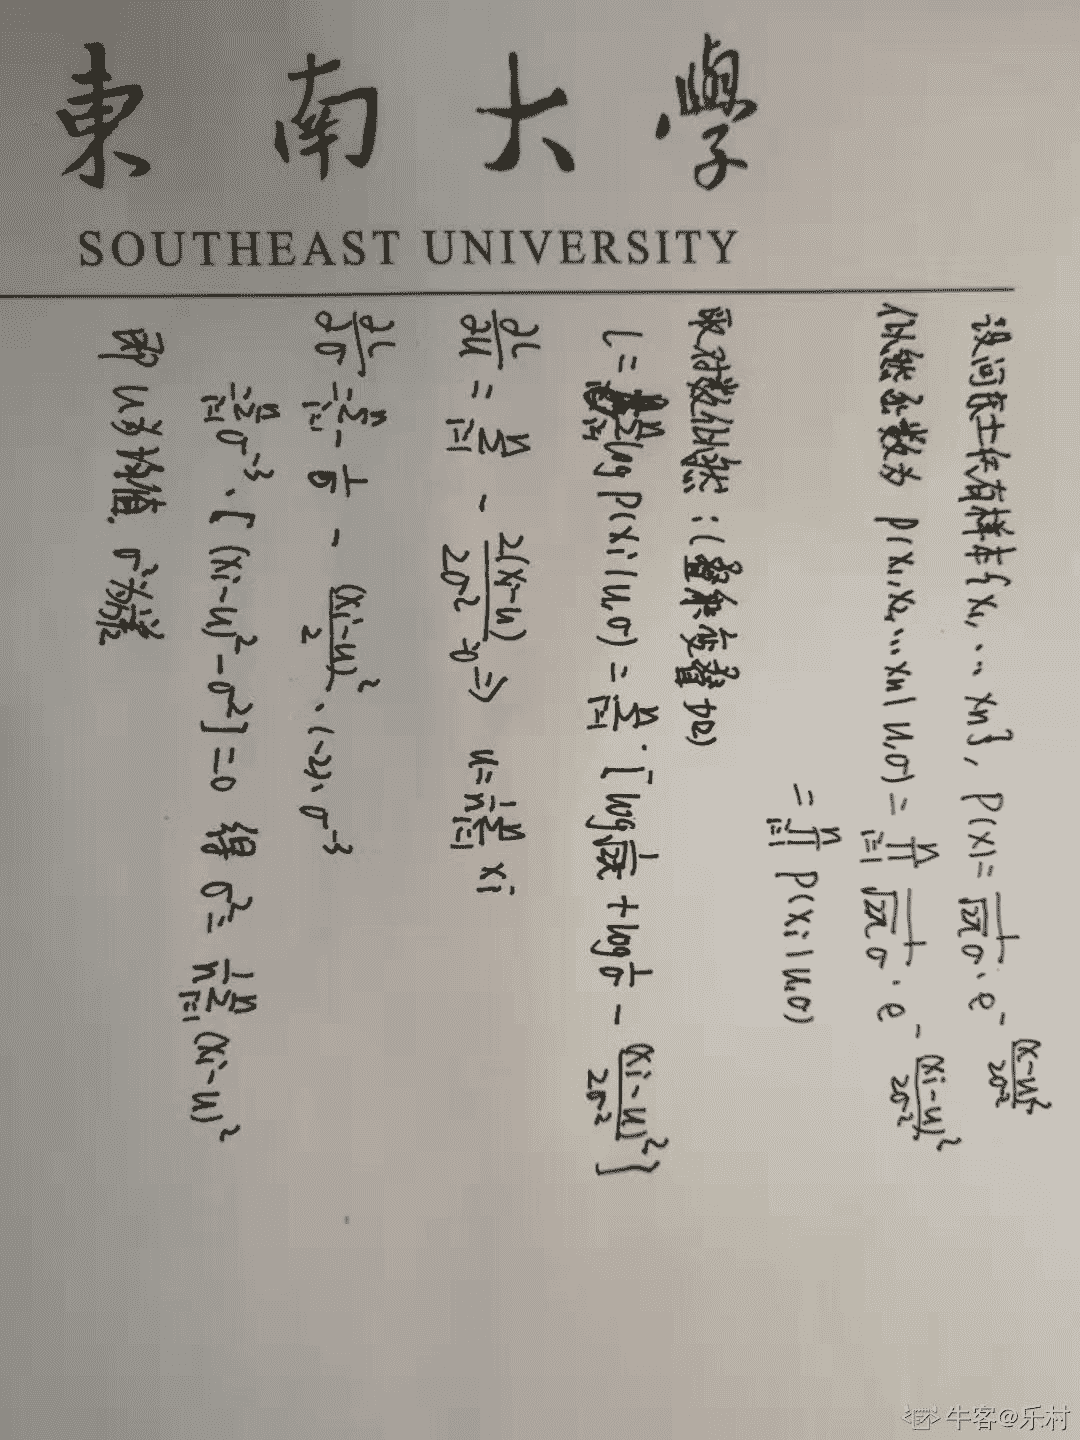 東南大學
SOUTHEAST UNIVERSITY
设间长土代有样本{x₁, ... xn}, P(x)= 1/(√2π σ) · e^-(x-u)²/2σ²
似然函数为 P(x₁, x₂, ... xn | u,σ) = ∏_{i=1}^{n} 1/(√2π σ) · e^-(xi-u)²/2σ²
= ∏_{i=1}^{n} P(xi | u,σ)
取对数似然: (叠乘变叠加)
L = ∑_{i=1}^{n} log P(xi | u,σ) = ∑_{i=1}^{n} · [log 1/√2π + log 1/σ - (xi-u)²/2σ²]
∂L/∂u = ∑_{i=1}^{n} - 2(xi-u)/2σ² =0 => u = 1/n ∑_{i=1}^{n} xi
∂L/∂σ = ∑_{i=1}^{n} - 1/σ - (xi-u)²/2 · (-2) · σ^-3
= ∑_{i=1}^{n} σ^-3 · [(xi-u)² - σ²] = 0 得 σ² = 1/n ∑_{i=1}^{n} (xi-u)²
即 u为均值. σ²为方差
牛客@乐村